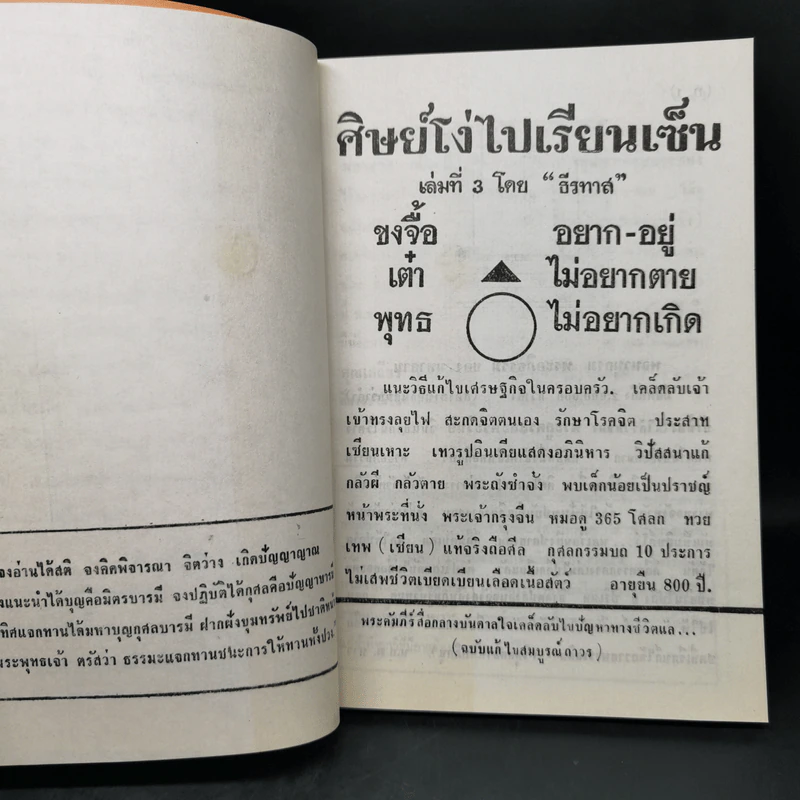 องอ่านได้สติ จงคิดพิจารณา จิตว่าง เกิดปัญญาญาณ
แนะนำได้บุญคือมิตรบารมี จงปฏิบัติได้กุศลคือปัญญาบารมี
ทิศแจกทานได้มหาบุญกุศลบารมี ฝากฝังขุมทรัพย์ไปชาติหน้า
พระพุทธเจ้า ตรัสว่า ธรรมะแจกทานชนะการให้ทานทั้งปวง
ศิษย์โง่ไปเรียนเซ็น
เล่มที่ 3 โดย “ธีรทาส”
ขงจื้อ อยาก-อยู่
เต๋า ไม่อยากตาย
พุทธ ไม่อยากเกิด
แนะวิธีแก้ไขเศรษฐกิจในครอบครัว. เคล็ดลับเจ้า
เข้าทรงลุยไฟ สะกดจิตตนเอง รักษาโรคจิต ประสาท
เซียนเหาะ เทวรูปอินเดียแสดงอภินิหาร วิปัสสนาแก้
กลัวผี กลัวตาย พระถังซำจั๋ง พบเด็กน้อยเป็นปราชญ์
หน้าพระที่นั่ง พระเจ้ากรุงจีน หมอดู 365 โศลก ทวย
เทพ (เซียน) แท้จริงถือศีล กุศลกรรมบถ 10 ประการ
ไม่เสพชีวิตเบียดเบียนเลือดเนื้อสัตว์ อายุยืน 800 ปี.
พระคัมภีร์สื่อกลางบันดาลใจเคล็ดลับไขปัญหาทางชีวิตแล...
(ฉบับแก้ไขสมบูรณ์ถาวร)